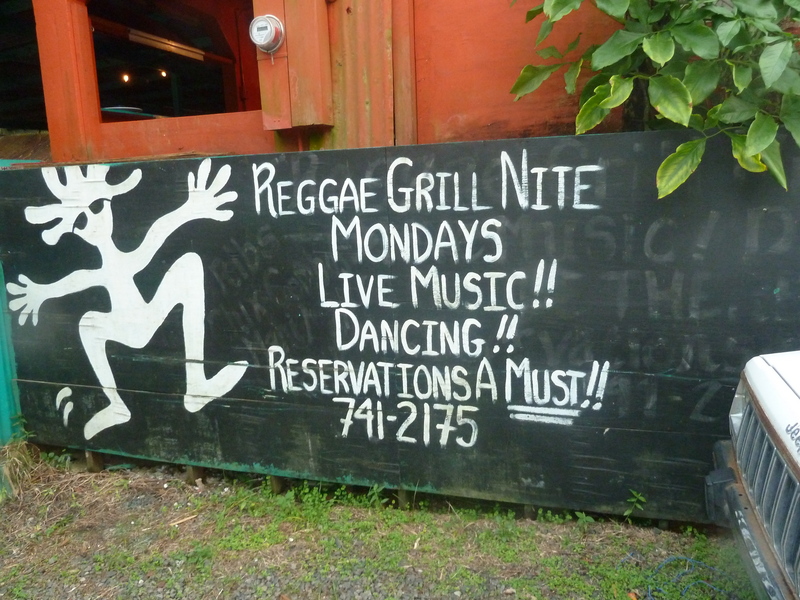 REGGAE GRILL NITE
MONDAYS
LIVE MUSIC!!
DANCING!!
RESERVATIONS A MUST!!
741-2175
Jeep